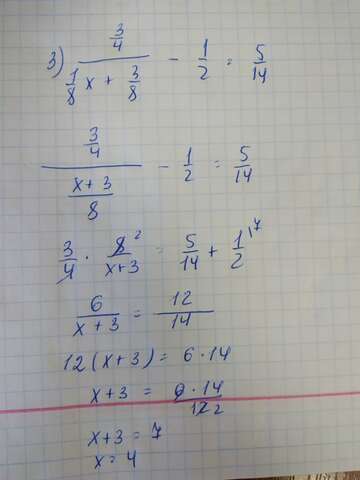 3) (3/4)/(1/8 x + 3/8) - 1/2 = 5/14
(3/4)/((x+3)/8) - 1/2 = 5/14
3/4 · 8/(x+3) 2 = 5/14 + 1/2 17
6/(x+3) = 12/14
12(x+3) = 6·14
x+3 = 6·14/12 2
x+3 = 7
x = 4